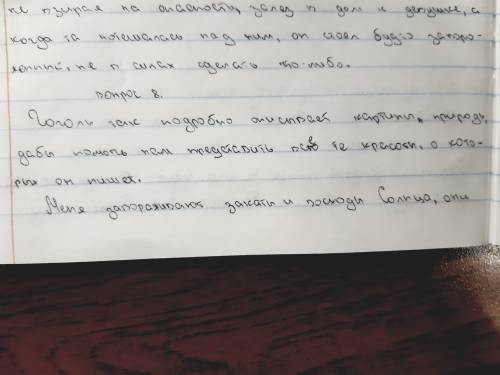 не взирая на опасность, залез в дом к девушке, а
когда та потешалась над ним, он стоял будто заворо-
женный, не в силах сделать что-либо.
Вопрос 8.
Гоголь так подробно описывает картины природы,
дабы помочь нам представить все те красоты, о кото-
рых он пишет.
Меня завораживают закаты и восходы Солнца, они